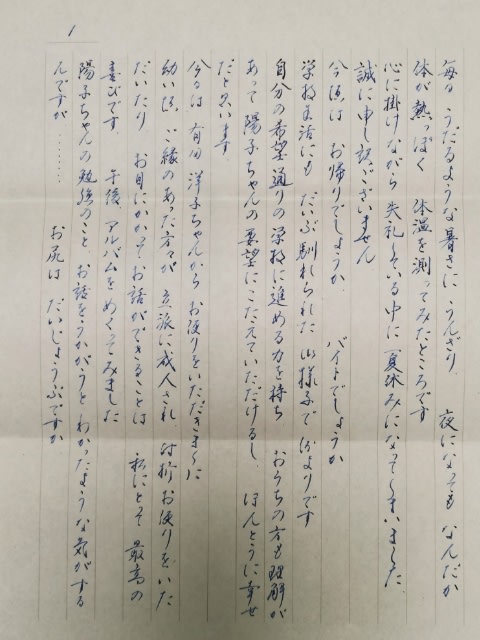 1
毎日 うだるような暑さに うんざり 夜になっても なんだか
体が熱っぽく 体温を測ってみたところです
心に掛けながら 失礼している中に 夏休みになってしまいました
誠に申し訳ございません
今頃は お帰りでしょうか バイトでしょうか
学校生活にも だいぶ馴れられた御様子で 何よりです
自分の希望通りの学校に進める力を持ち おうちの方も理解が
あって 陽子ちゃんの要望にこたえていただけるし、ほんとうに幸せ
だと思います
今日は 有田 洋子ちゃんから お便りをいただきました
幼い頃、ご縁のあった方々が 立派に成人され 時折お便りをいた
だいたり お目にかかってお話ができることは 私にとって 最高の
喜びです 午後、アルバムをめくってみました
陽子ちゃんの勉強のこと、お話をうかがうと わかったような気がする
んですが……… お尻は だいじょうぶですか